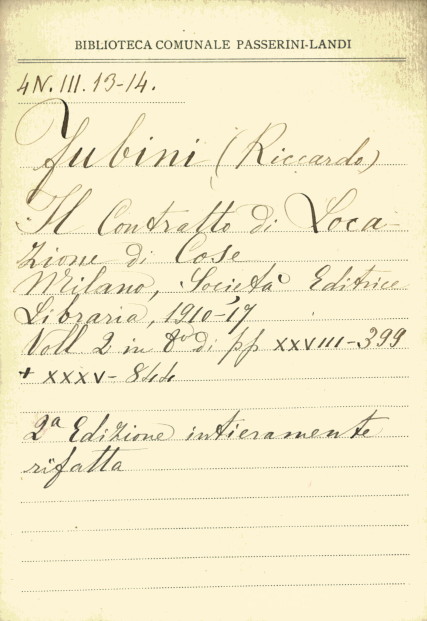 BIBLIOTECA COMUNALE PASSERINI-LANDI
4N. III. 13-14.
Fubini (Riccardo)
Il Contratto di Loca-
zione di Cose
Milano, Società Editrice
Libraria, 1910-17
Voll 2 in 8° di pp XXVIII-399
+ XXXV-844
2ª Edizione intieramente
rifatta